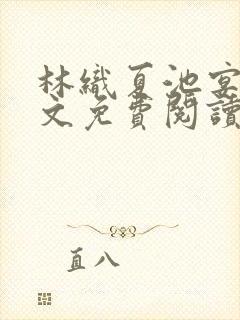 林織夏池宴
文免費閱讀
直八